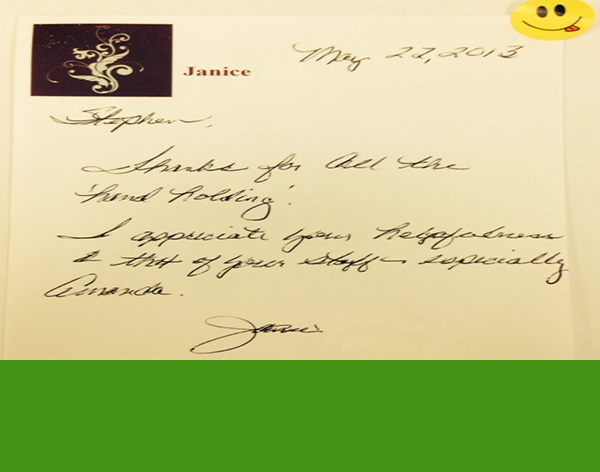 Janice
May 22, 2013
Stephen,
Thanks for all the
'hand holding'.
I appreciate your helpfulness
& that of your staff - especially
Amanda.
Janice